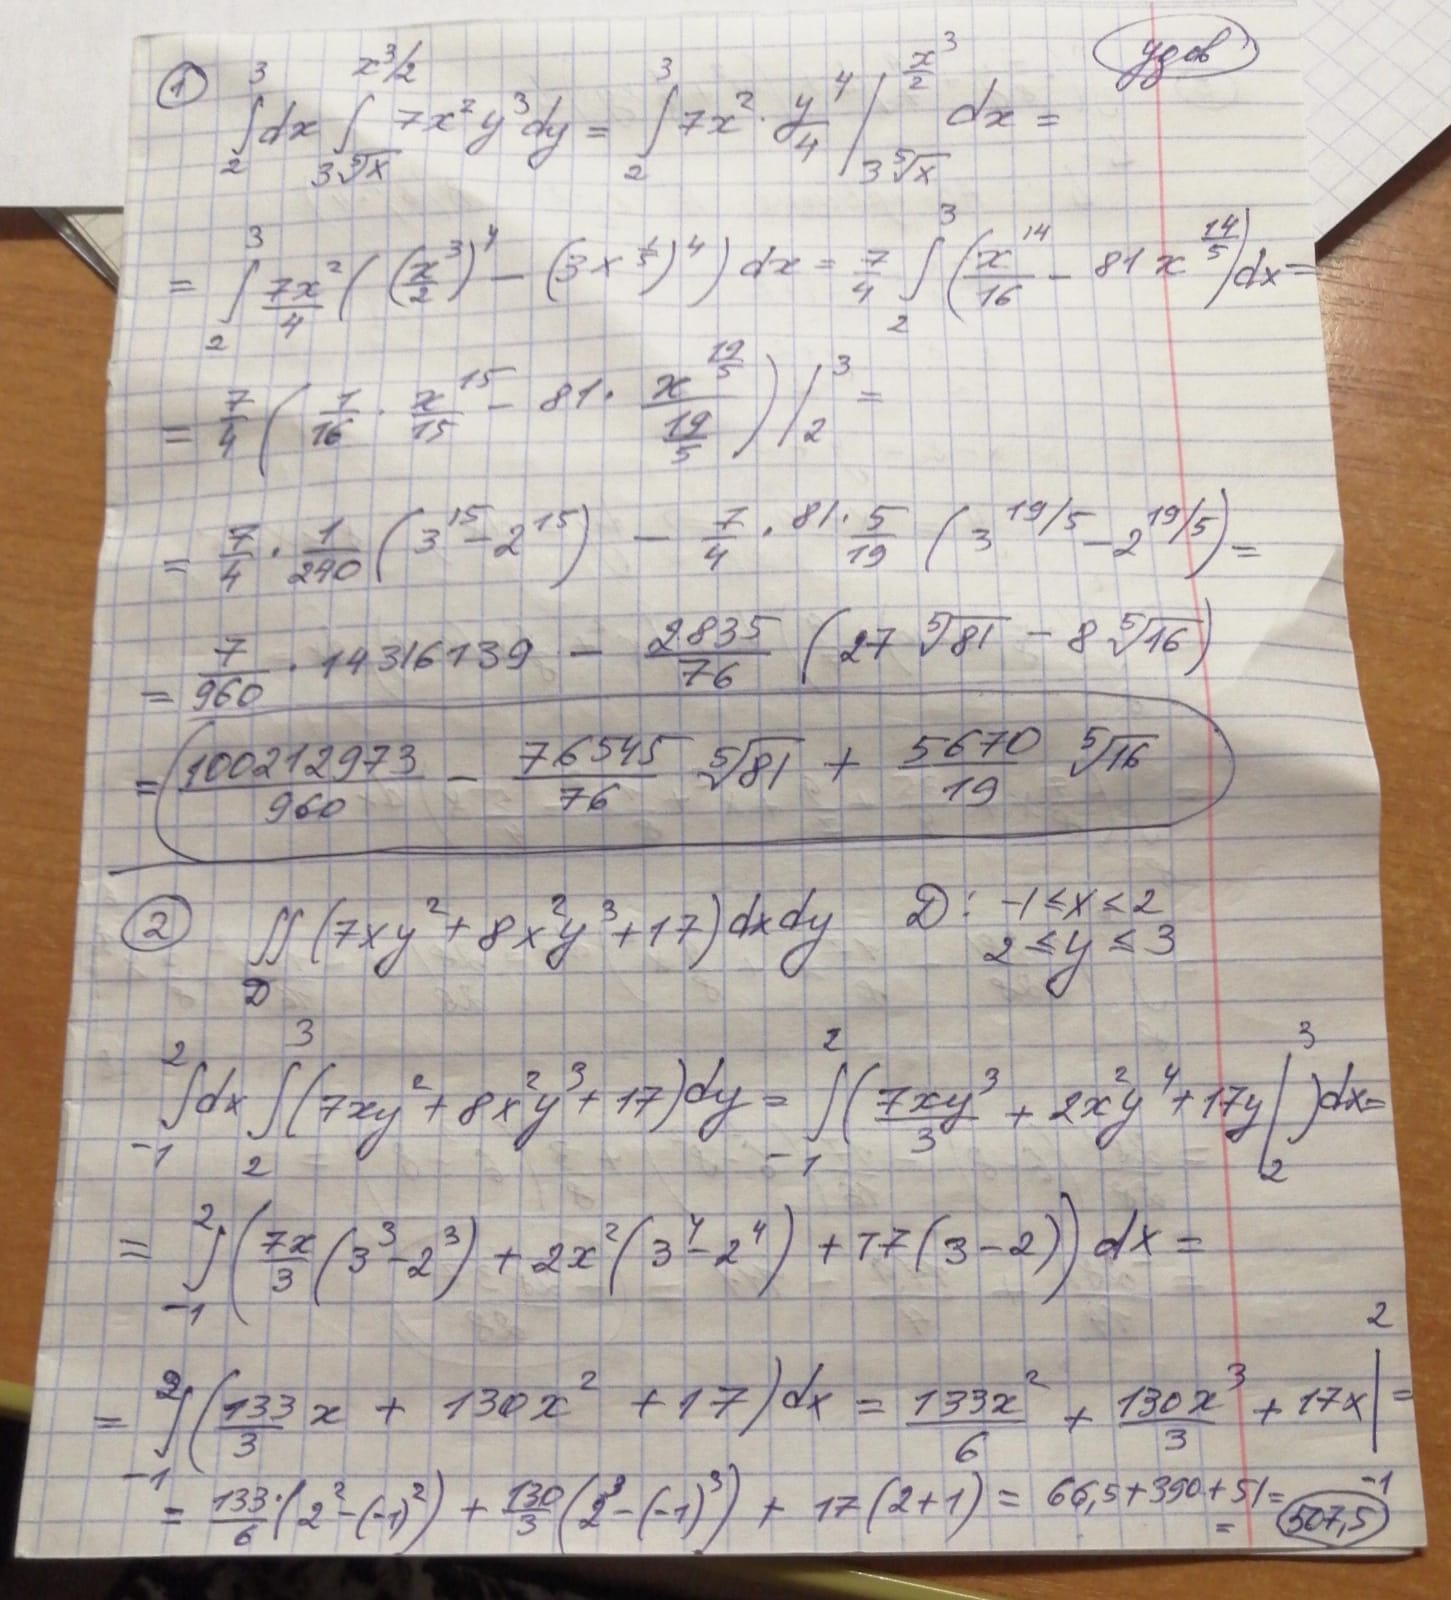 удов
① ∫₂³ dx ∫_{3⁵√x}^{x³/2} 7x²y³dy = ∫₂³ 7x² · y⁴/4 |_{3⁵√x}^{x³/2} dx =
= ∫₂³ 7x²/4 ((x³/2)⁴ - (3x^{1/5})⁴) dx = 7/4 ∫₂³ (x¹⁴/16 - 81x^{14/5}) dx =
= 7/4 (1/16 · x¹⁵/15 - 81 · x^{19/5}/(19/5)) |₂³ =
= 7/4 · 1/240 (3¹⁵ - 2¹⁵) - 7/4 · 81 · 5/19 (3^{19/5} - 2^{19/5}) =
= 7/960 · 14316139 - 2835/76 (27 ⁵√81 - 8 ⁵√16)
= 100212973/960 - 76545/76 ⁵√81 + 5670/19 ⁵√16
② ∬_D (7xy² + 8x²y³ + 17) dxdy D: -1 ≤ x ≤ 2
2 ≤ y ≤ 3
∫₋₁² dx ∫₂³ (7xy² + 8x²y³ + 17) dy = ∫₋₁² (7xy³/3 + 2x²y⁴ + 17y |₂³) dx =
= ∫₋₁² (7x/3 (3³ - 2³) + 2x² (3⁴ - 2⁴) + 17 (3 - 2)) dx =
= ∫₋₁² (133/3 x + 130x² + 17) dx = 133x²/6 + 130x³/3 + 17x |₋₁² =
= 133/6 · (2² - (-1)²) + 130/3 (2³ - (-1)³) + 17 (2 + 1) = 66,5 + 390 + 51 =
= 507,5